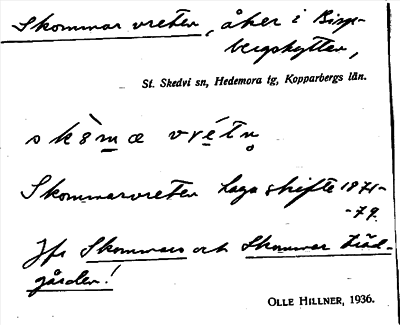 Skommar vreten, åker i Bisp-
bergshyttan,
St. Skedvi sn, Hedemora tg, Kopparbergs län.
skòmæ vrétn̥
Skommarvreten Laga skifte 1871-
-79.
Jfr Skommars och Skommar Träd-
gården!
OLLE HILLNER, 1936.